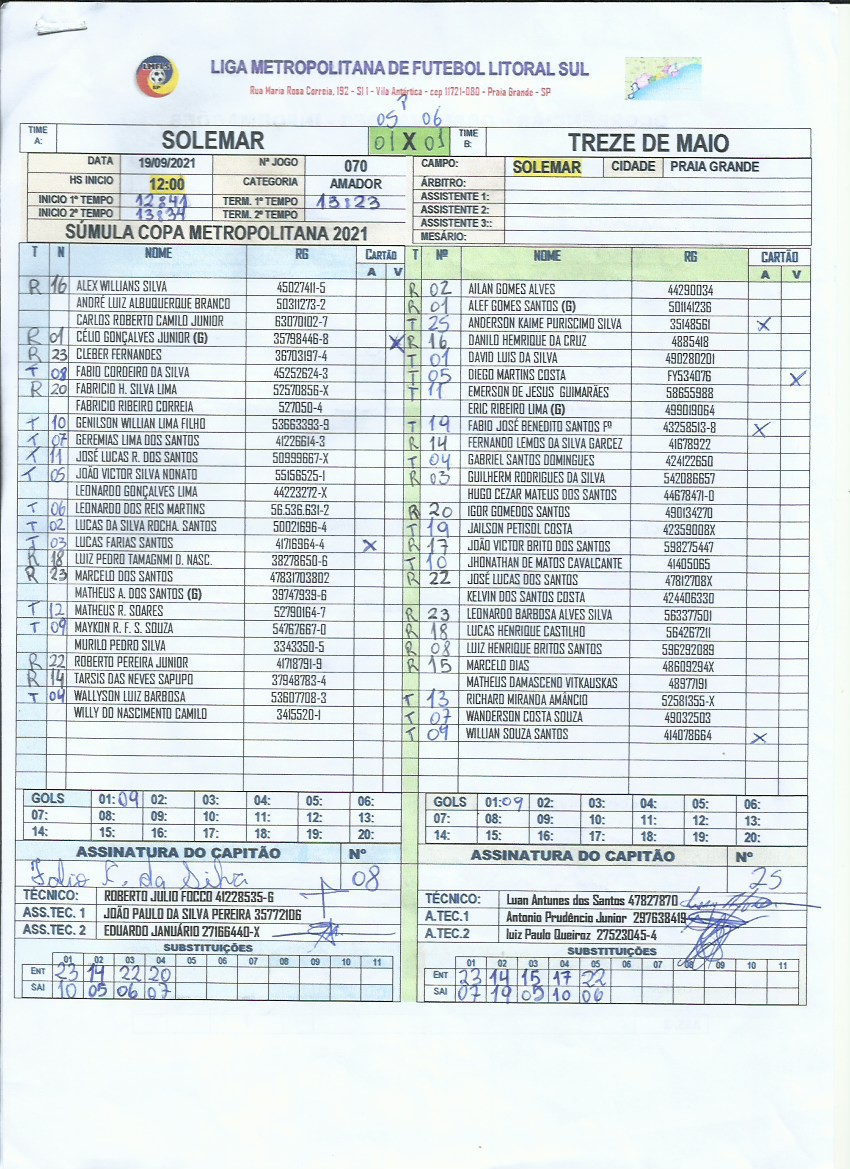 LIGA METROPOLITANA DE FUTEBOL LITORAL SUL
Rua Maria Rosa Correia, 192 - Sl 1 - Vila Antártica - cep 11721-080 - Praia Grande - SP
05 P 06
TIME A: SOLEMAR 01 X 01 TIME B: TREZE DE MAIO
DATA 19/09/2021 Nº JOGO 070 CAMPO: SOLEMAR CIDADE PRAIA GRANDE
HS INICIO 12:00 CATEGORIA AMADOR ÁRBITRO:
INICIO 1º TEMPO 12:41 TERM. 1º TEMPO 13:23 ASSISTENTE 1:
INICIO 2º TEMPO 13:34 TERM. 2º TEMPO ASSISTENTE 2:
ASSISTENTE 3::
SÚMULA COPA METROPOLITANA 2021 MESÁRIO:
T N NOME RG CARTÃO A V
R 16 ALEX WILLIANS SILVA 45027411-5
ANDRÉ LUIZ ALBUQUERQUE BRANCO 50311273-2
CARLOS ROBERTO CAMILO JUNIOR 63070102-7
R 01 CÉLIO GONÇALVES JUNIOR (G) 35798446-8 X
R 23 CLEBER FERNANDES 36703197-4
T 08 FABIO CORDEIRO DA SILVA 45252624-3
R 20 FABRICIO H. SILVA LIMA 52570856-X
FABRICIO RIBEIRO CORREIA 527050-4
T 10 GENILSON WILLIAN LIMA FILHO 53663393-9
T 07 GEREMIAS LIMA DOS SANTOS 41226614-3
T 11 JOSÉ LUCAS R. DOS SANTOS 50999667-X
T 05 JOÃO VICTOR SILVA NONATO 55156525-1
LEONARDO GONÇALVES LIMA 44223272-X
T 06 LEONARDO DOS REIS MARTINS 56.536.631-2
T 02 LUCAS DA SILVA ROCHA. SANTOS 50021696-4
T 03 LUCAS FARIAS SANTOS 41716964-4 X
R 18 LUIZ PEDRO TAMAGNMI D. NASC. 38278650-6
R 23 MARCELO DOS SANTOS 47831703802
MATHEUS A. DOS SANTOS (G) 39747939-6
T 12 MATHEUS R. SOARES 52790164-7
T 09 MAYKON R. F. S. SOUZA 54767667-0
MURILO PEDRO SILVA 3343350-5
R 22 ROBERTO PEREIRA JUNIOR 41718791-9
R 14 TARSIS DAS NEVES SAPUPO 37948783-4
T 04 WALLYSON LUIZ BARBOSA 53607708-3
WILLY DO NASCIMENTO CAMILO 3415520-1
T Nº NOME RG CARTÃO A V
R 02 AILAN GOMES ALVES 44290034
R 01 ALEF GOMES SANTOS (G) 501141236
T 25 ANDERSON KAIME PURISCIMO SILVA 35148561 X
R 16 DANILO HENRIQUE DA CRUZ 4885418
T 01 DAVID LUIS DA SILVA 490280201
T 05 DIEGO MARTINS COSTA FY534076 X
T 11 EMERSON DE JESUS GUIMARÃES 58655988
ERIC RIBEIRO LIMA (G) 499019064
T 19 FABIO JOSÉ BENEDITO SANTOS Fº 43258513-8 X
R 14 FERNANDO LEMOS DA SILVA GARCEZ 41678922
T 04 GABRIEL SANTOS DOMINGUES 424122650
R 03 GUILHERM RODRIGUES DA SILVA 542086657
HUGO CEZAR MATEUS DOS SANTOS 44678471-0
R 20 IGOR GOMEDOS SANTOS 490134270
T 19 JAILSON PETISOL COSTA 42359008X
R 17 JOÃO VICTOR BRITO DOS SANTOS 598275447
T 10 JHONATHAN DE MATOS CAVALCANTE 41405065
R 22 JOSÉ LUCAS DOS SANTOS 47812708X
KELVIN DOS SANTOS COSTA 424406330
R 23 LEONARDO BARBOSA ALVES SILVA 563377501
R 18 LUCAS HENRIQUE CASTILHO 564267211
R 08 LUIZ HENRIQUE BRITOS SANTOS 596292089
R 15 MARCELO DIAS 48609294X
MATHEUS DAMASCENO VITKAUSKAS 48977191
T 13 RICHARD MIRANDA AMÂNCIO 52581355-X
T 07 WANDERSON COSTA SOUZA 49032503
T 09 WILLIAN SOUZA SANTOS 414078664 X
GOLS 01: 09 02: 03: 04: 05: 06:
07: 08: 09: 10: 11: 12: 13:
14: 15: 16: 17: 18: 19: 20:
ASSINATURA DO CAPITÃO Nº
08
TÉCNICO: ROBERTO JULIO FOCCO 41228535-6
ASS.TEC. 1 JOÃO PAULO DA SILVA PEREIRA 35772106
ASS.TEC. 2 EDUARDO JANUÁRIO 27166440-X
SUBSTITUIÇÕES
01 02 03 04 05 06 07 08 09 10 11
ENT 23 14 22 20
SAI 10 05 06 07
GOLS 01: 09 02: 03: 04: 05: 06:
07: 08: 09: 10: 11: 12: 13:
14: 15: 16: 17: 18: 19: 20:
ASSINATURA DO CAPITÃO Nº
25
TÉCNICO: Luan Antunes dos Santos 47827870
A.TEC.1 Antonio Prudêncio Junior 297638419
A.TEC.2 luiz Paulo Queiroz 27523045-4
SUBSTITUIÇÕES
01 02 03 04 05 06 07 08 09 10 11
ENT 23 14 15 17 22
SAI 07 19 05 10 06